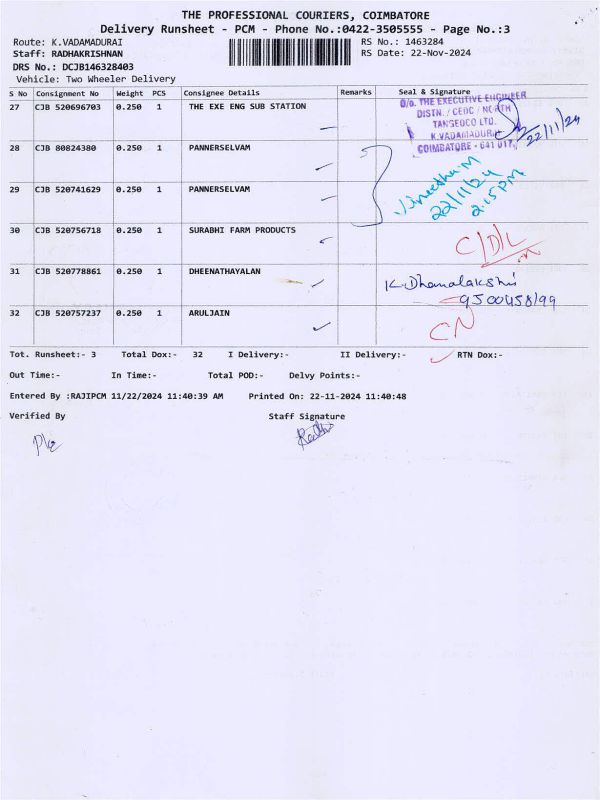 THE PROFESSIONAL COURIERS, COIMBATORE
Delivery Runsheet - PCM - Phone No.:0422-3505555 - Page No.:3
Route: K.VADAMADURAI
RS No.: 1463284
Staff: RADHAKRISHNAN
RS Date: 22-Nov-2024
DRS No.: DCJB146328403
Vehicle: Two Wheeler Delivery
S No Consignment No Weight PCS Consignee Details Remarks Seal & Signature
27 CJB 520696703 0.250 1 THE EXE ENG SUB STATION
O/o. THE EXECUTIVE ENGINEER
DISTN. / CEDC / NORTH
TANGEDCO LTD.
K.VADAMADURAI
COIMBATORE - 641 017.
22/11/24
28 CJB 80824380 0.250 1 PANNERSELVAM
29 CJB 520741629 0.250 1 PANNERSELVAM
22/11/24
2.15 PM
30 CJB 520756718 0.250 1 SURABHI FARM PRODUCTS
C/D/L
31 CJB 520778861 0.250 1 DHEENATHAYALAN
K. Dhanalakshmi
32 CJB 520757237 0.250 1 ARULJAIN
CN
Tot. Runsheet:- 3 Total Dox:- 32 I Delivery:- II Delivery:- RTN Dox:-
Out Time:- In Time:- Total POD:- Delvy Points:-
Entered By :RAJIPCM 11/22/2024 11:40:39 AM Printed On: 22-11-2024 11:40:48
Verified By Staff Signature